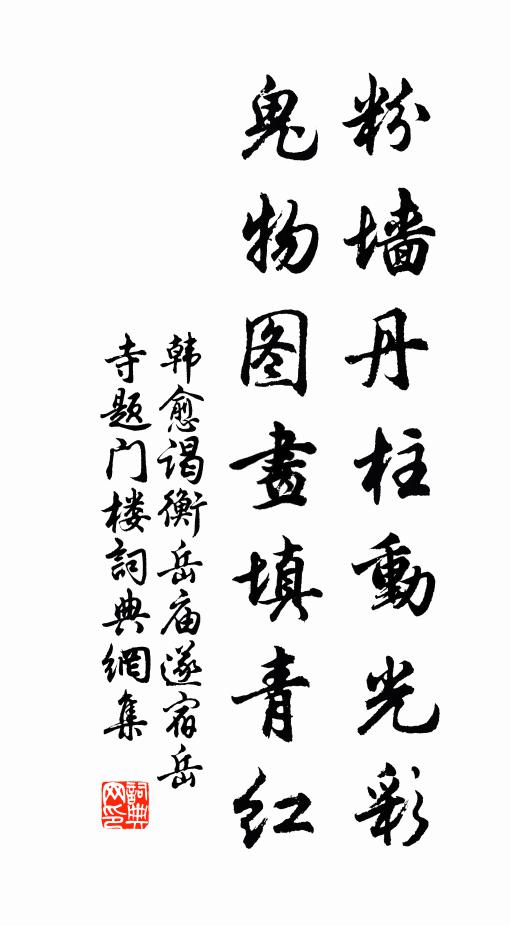 粉墙丹柱動光彩
鬼物图畫填青红
韩愈谒衡岳庙遂宿岳
寺题门楼詞典網集
詞典网印